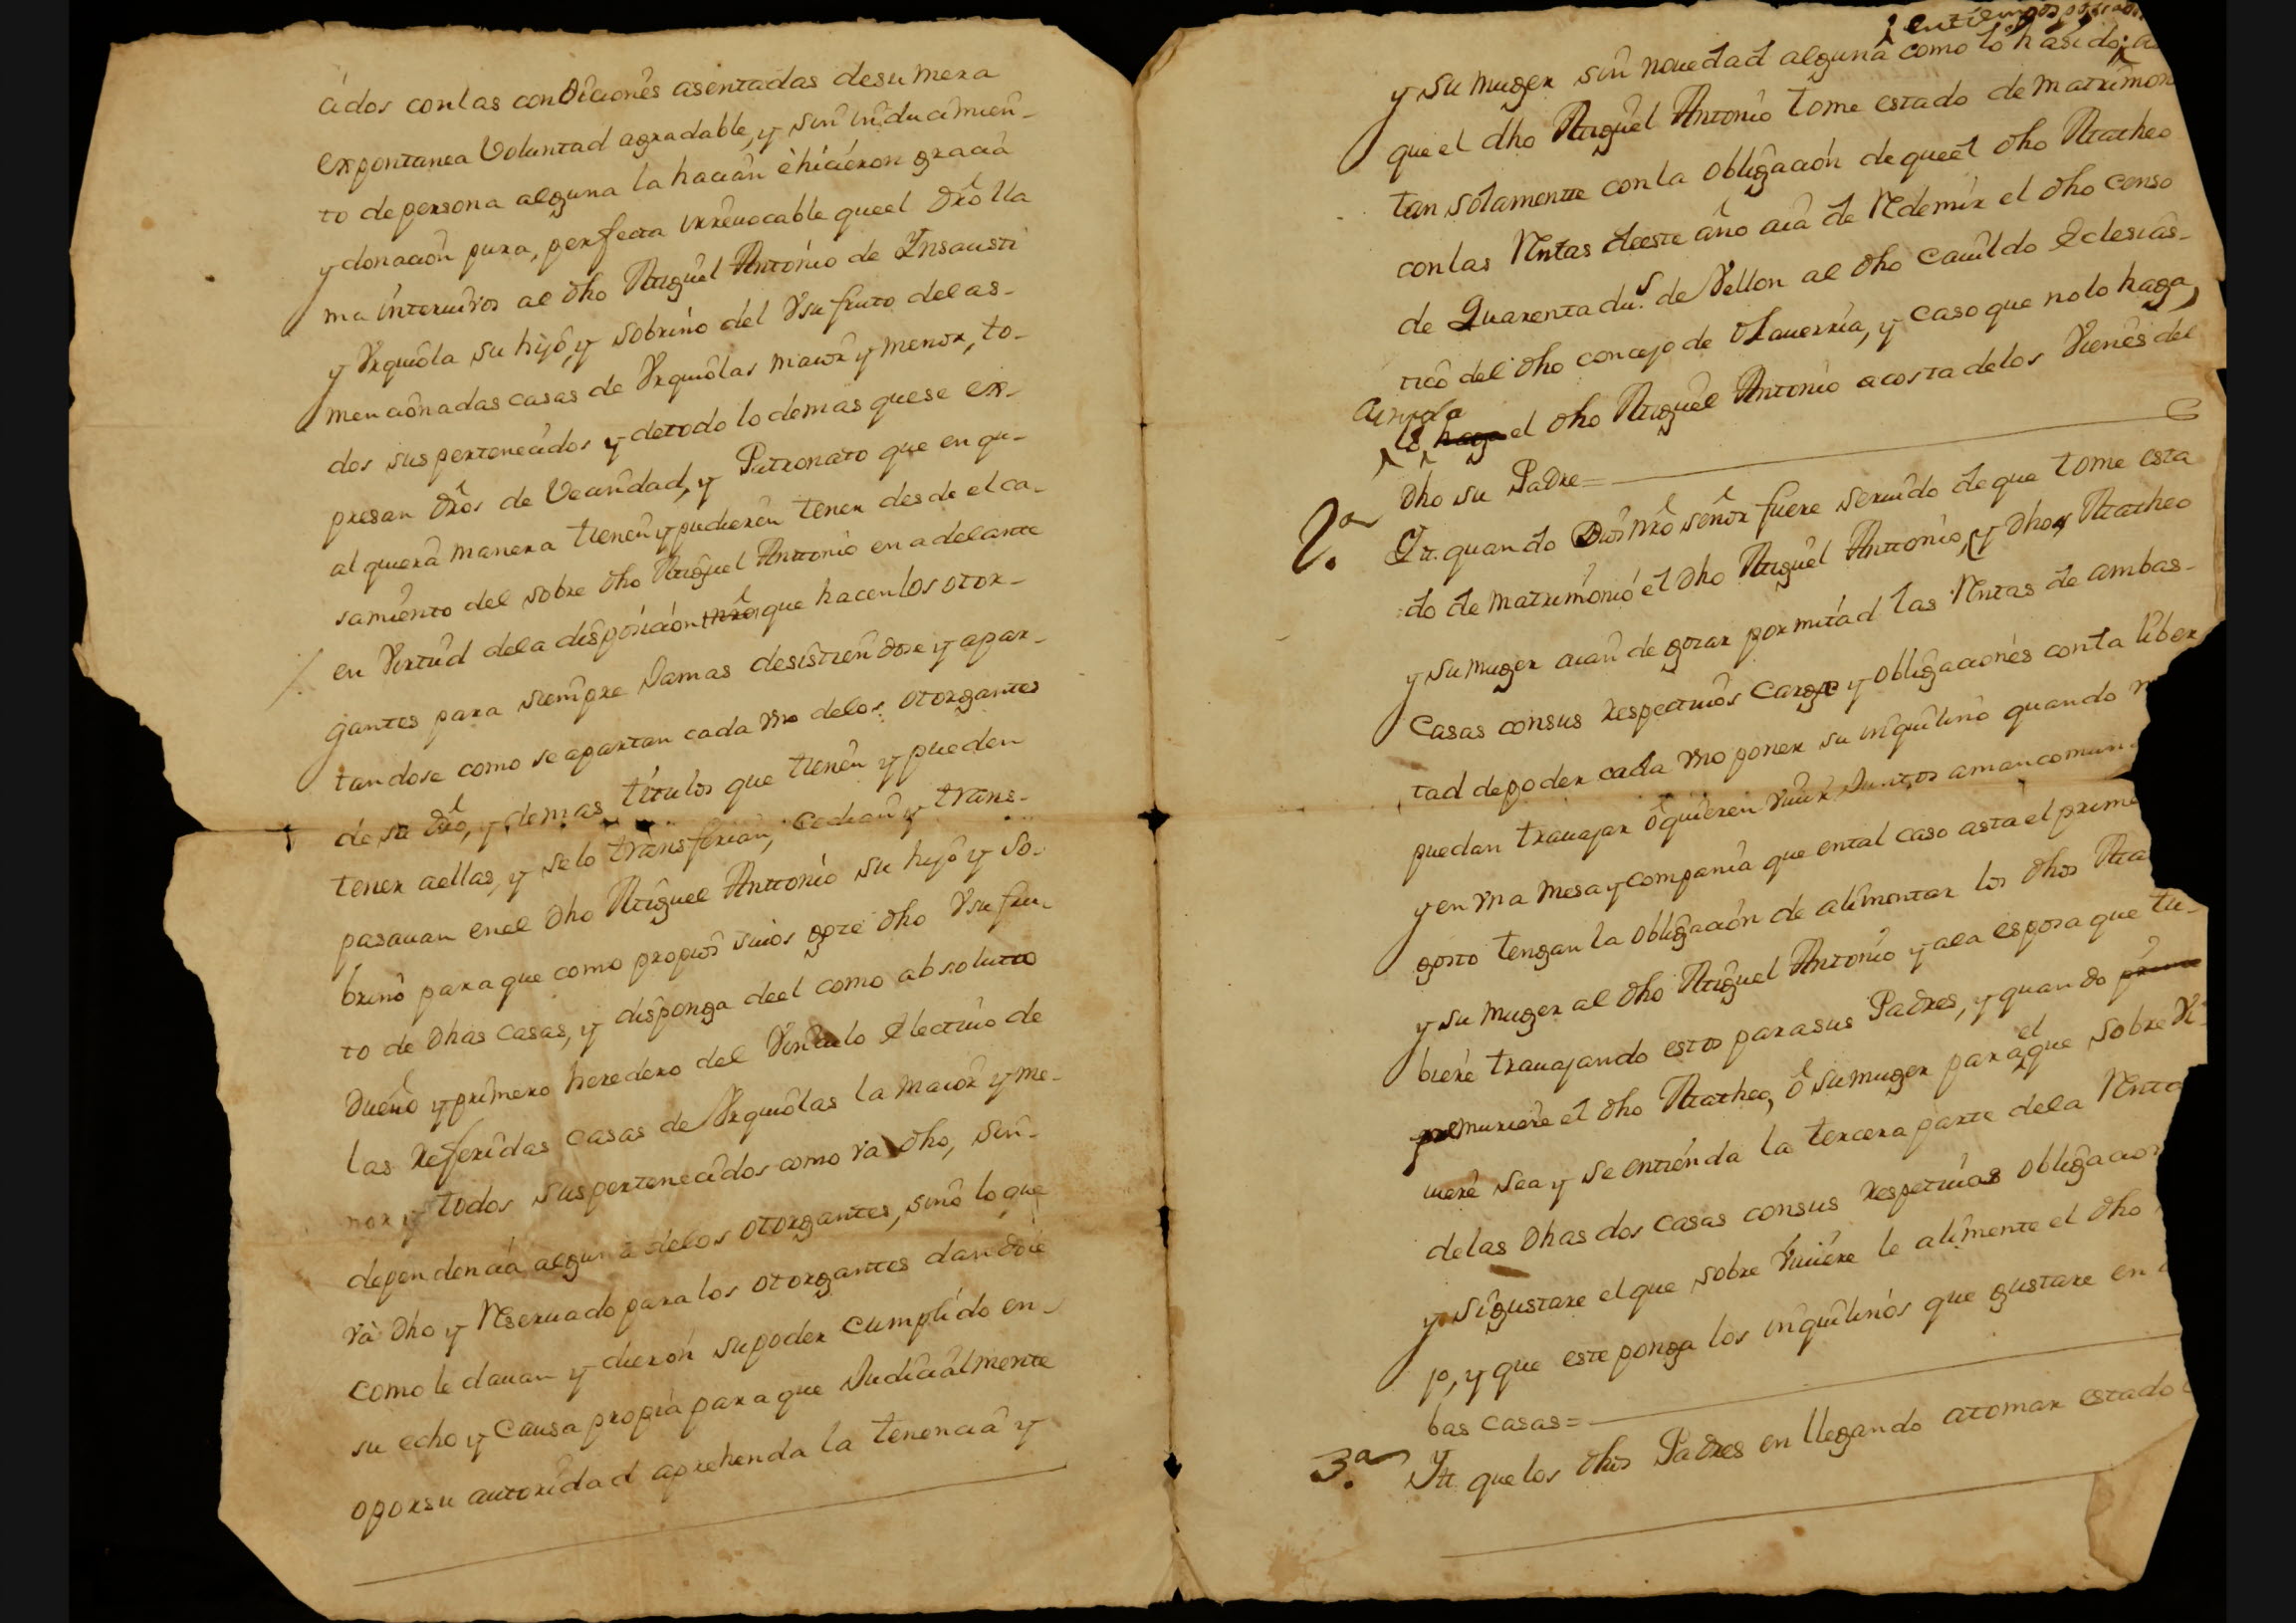 cidos con las condiciones asentadas de su mera
expontanea Voluntad agradable, y sin inducimien-
to de persona alguna la hacian è hicieron gracia
y donacion pura, perfecta irrevocable que el dro lla
ma intervivos al dho Miguel Antonio de Ynsausti
y Vrquiola su hijo, y sobrino del Vsufruto de las-
mencionadas casas de Vrquiolas maior y menor, to-
dos sus pertenecidos y de todo lo demas que se ex-
presan dros de Vecindad, y Patronato que en qu-
alquera manera tienen y pudieren tener desde el ca-
samiento del sobre dho Miguel Antonio en adelante
en Virtud de la disposición que hacen los otor-
gantes para siempre Jamas desistiendose y apar-
tandose como se apartan cada vno de los otorgantes
de su dro, y demas titulos que tienen y pueden
tener a ellas, y se lo transferian, cedian y trans-
pasauan en el dho Miguel Antonio su hijo y so-
brino para que como propios suios goze dho Vsufru-
to de dhas casas, y disponga de el como absoluto
dueño y primero heredero del Vinculo electivo de
las referidas casas de Vrquiolas la maior y me-
nor y todos sus pertenecidos como va dho, sin-
dependencia alguna de los otorgantes, sino lo que
và dho y Reseruado para los otorgantes dandole
como le dauan y dieron su poder cumplido en-
su echo y Causa propia para que Judicialmente
o por su autoridad aprehenda la tenencia y
y su muger sin nouedad alguna como lo ha sido;
que el dho Miguel Antonio tome estado de matrimon
tan solamente con la obligación de que el dho Matheo
con las Rntas de este año aia de Redemir el dho censo
de Quarenta dus. de Vellon al dho Cauildo Eclesias-
tico del dho concejo de Olauerria, y caso que no lo haga,
cumpla
lo haga el dho Miguel Antonio a costa de los Vienes del
dho su Padre=
2.ª Yt. quando Dios nro señor fuere seruido de que tome esta
do de matrimonio el dho Miguel Antonio, y dhos Matheo
y su muger aian de gozar por mitad las Rntas de ambas-
Casas con sus respectiuos cargos y obligaciones con la liber
tad de poder cada vno poner su inquilino quando
puedan trauajar ò quieren viuir Juntos a mancomun
y en vna mesa y compania que en tal caso asta el prime
gosto tengan la obligación de alimentar los dhos
y su muger al dho Miguel Antonio y a la esposa que tu-
biere trauajando estos para sus Padres, y quando
premuriere el dho Matheo, ò su muger para el que sobre vi
uiere sea y se entienda la tercera parte de la Rnta
de las dhas dos casas con sus respetiuos obligacion
y si gustare el que sobre viuiere le alimente el dho
jo, y que este ponga los inquilinos que gustare en
bas casas=
3.ª Yt que los dhos Padres en llegando a tomar estado